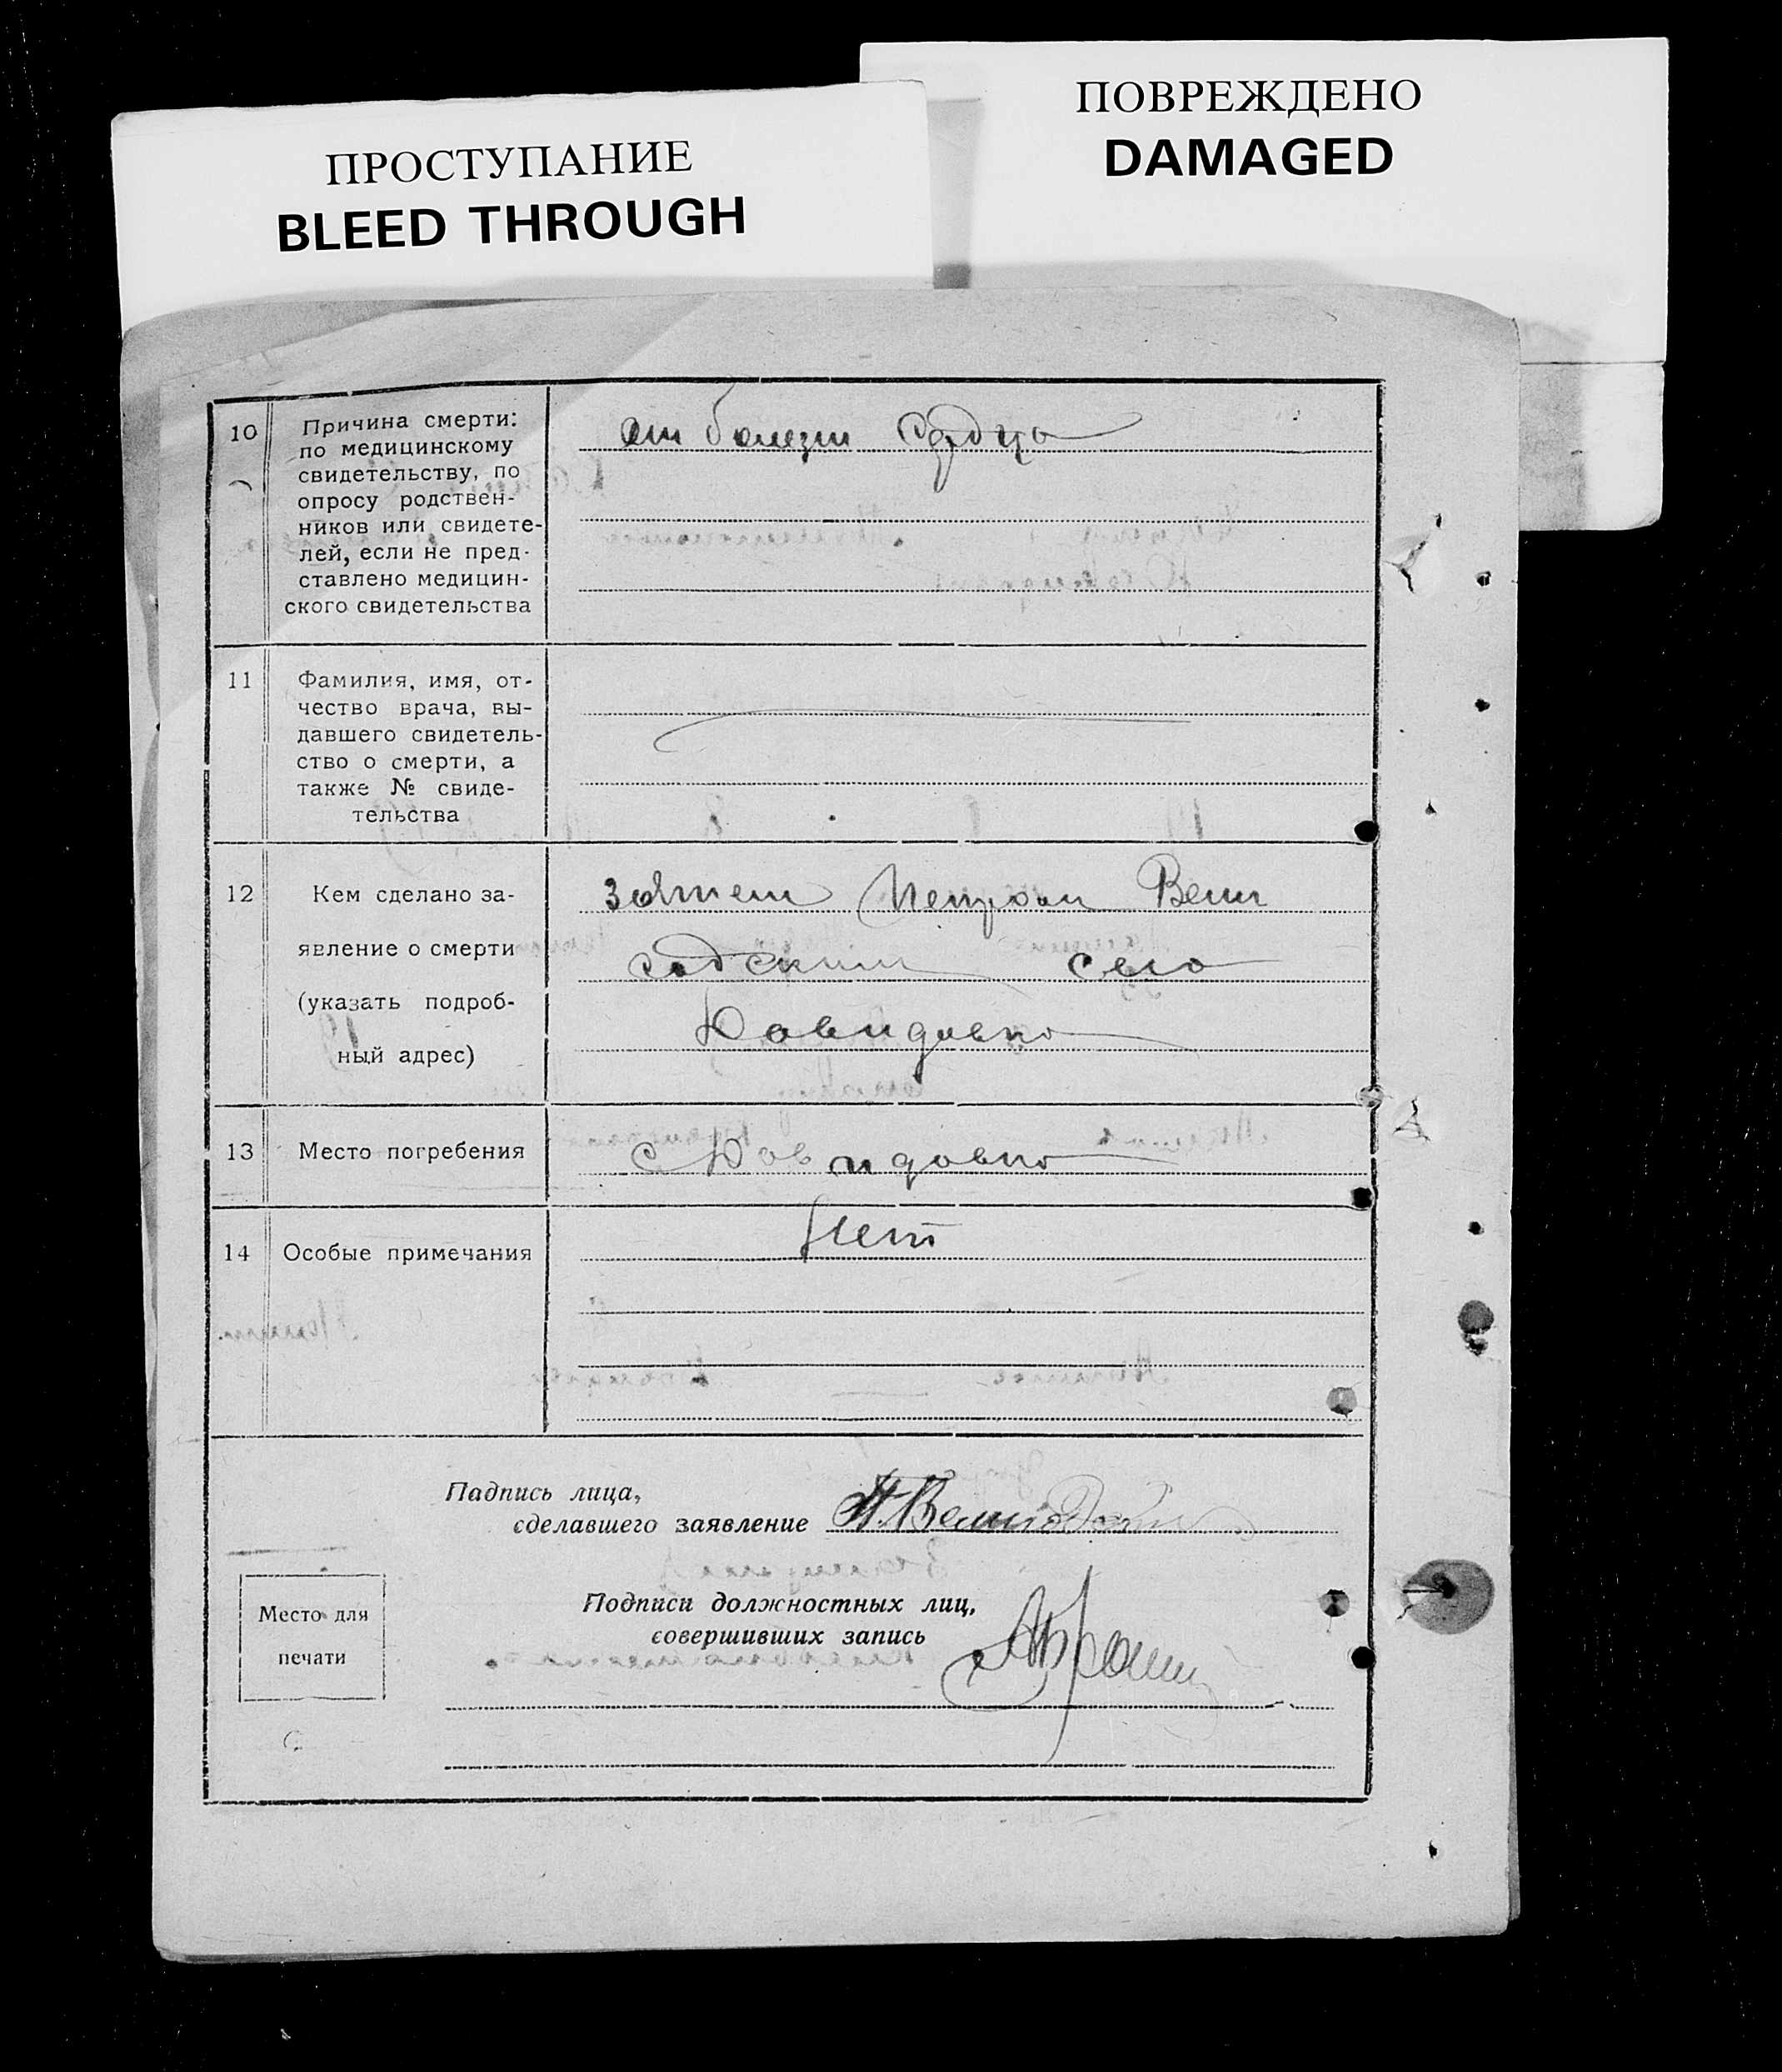 ПОВРЕЖДЕНО
DAMAGED
ПРОСТУПАНИЕ
BLEED THROUGH
10 Причина смерти:
по медицинскому
свидетельству, по
опросу родствен-
ников или свидете-
лей, если не пред-
ставлено медицин-
ского свидетельства
от болезни сердца
11 Фамилия, имя, от-
чество врача, вы-
давшего свидетель-
ство о смерти, а
также № свиде-
тельства
12 Кем сделано за-
явление о смерти
(указать подроб-
ный адрес)
Зятем Петром
село
Давидовко
13 Место погребения
с Давидовко
14 Особые примечания
Нет
Падпись лица,
сделавшего заявление
Подписи должностных лиц,
совершивших запись
Место для
печати